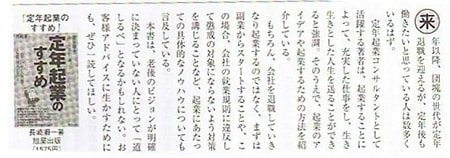 来
年以降、団塊の世代が定年
退職を迎えるが、定年後も
働きたいと思っている人は数多く
いるはず。
定年起業コンサルタントとして
活躍する著者は、起業することに
よって、充実した仕事をし、生き
生きとした人生を送ることができ
ると強調。そのうえで、起業のア
イデアや起業するための方法を紹
介している。
もちろん、会社を退職していき
なり起業するのではなく、まずは
副業からスタートすることや、こ
の場合、会社の就業規則に違反し
て懲戒の対象にならないよう対策
を講じることなど、起業にあたっ
ての具体的なノウハウについても
言及している。
本書は、老後のビジョンが明確
に決まっていない人にとって「道
しるべ」となるかもしれない。お
客様アドバイスに生かすために
も、ぜひ一読してほしい。
「定年起業の
すすめ」
定年起業の
すすめ
旭屋出版
(1575円)